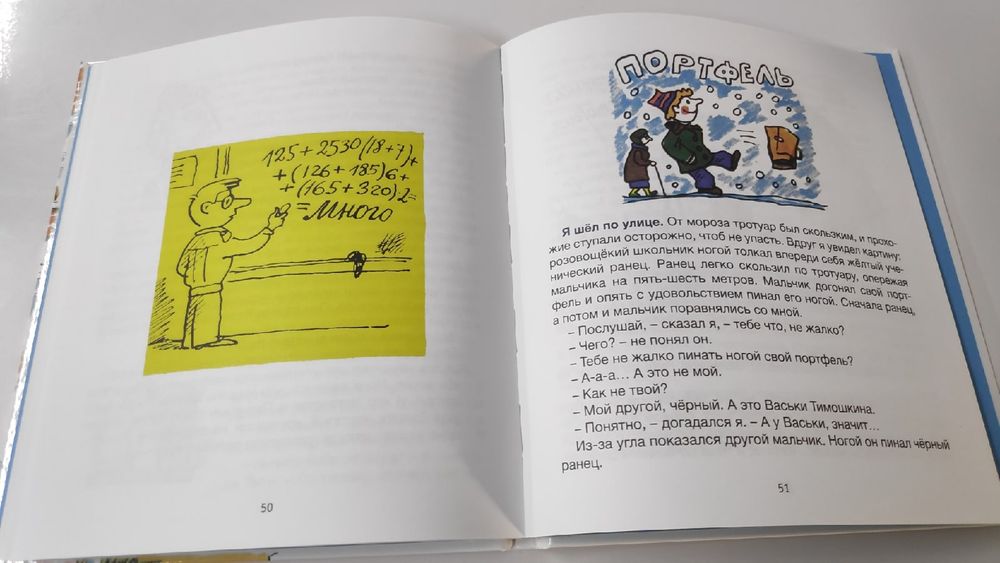 125+2530(18+7)+
+(126+185)6+
+(165+320)2=
=Много
50
ПОРТФЕЛЬ
Я шёл по улице. От мороза тротуар был скользким, и прохо-
жие ступали осторожно, чтоб не упасть. Вдруг я увидел картину:
розовощёкий школьник ногой толкал впереди себя жёлтый уче-
нический ранец. Ранец легко скользил по тротуару, опережая
мальчика на пять-шесть метров. Мальчик догонял свой порт-
фель и опять с удовольствием пинал его ногой. Сначала ранец,
а потом и мальчик поравнялись со мной.
– Послушай, – сказал я, – тебе что, не жалко?
– Чего? – не понял он.
– Тебе не жалко пинать ногой свой портфель?
– А-а-а... А это не мой.
– Как не твой?
– Мой другой, чёрный. А это Васьки Тимошкина.
– Понятно, – догадался я. – А у Васьки, значит...
Из-за угла показался другой мальчик. Ногой он пинал чёрный
ранец.
51